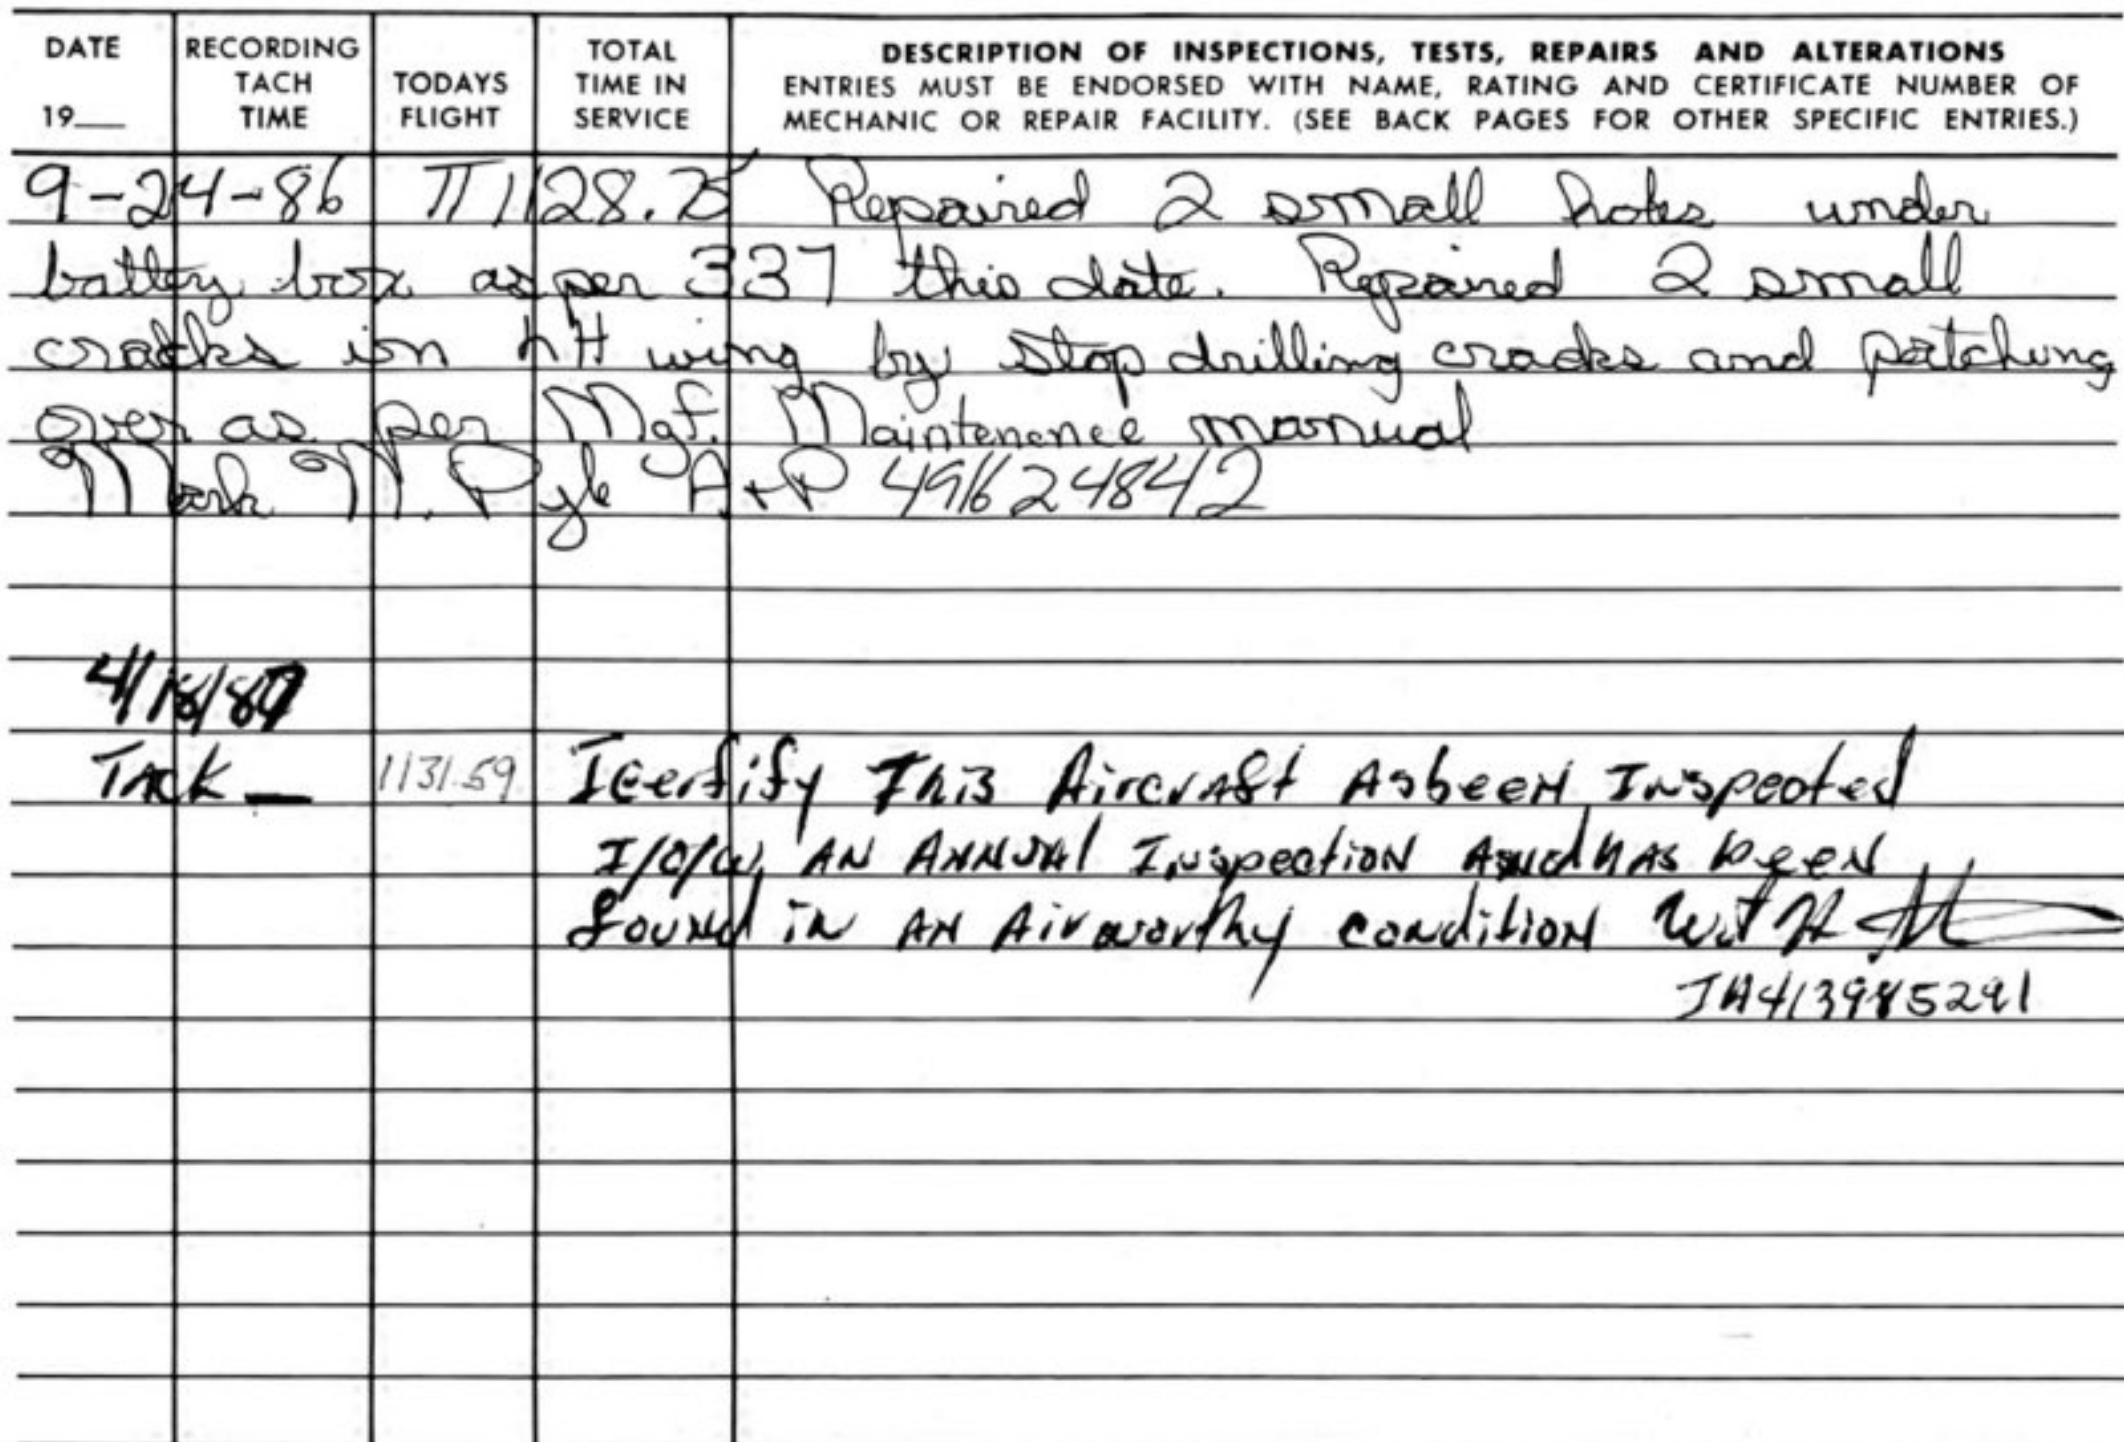 DATE RECORDING TOTAL DESCRIPTION OF INSPECTIONS, TESTS, REPAIRS AND ALTERATIONS
TACH TODAYS TIME IN ENTRIES MUST BE ENDORSED WITH NAME, RATING AND CERTIFICATE NUMBER OF
19__ TIME FLIGHT SERVICE MECHANIC OR REPAIR FACILITY. (SEE BACK PAGES FOR OTHER SPECIFIC ENTRIES.)
9-24-86 TT 1128.75 Repaired 2 small holes under
battery box as per 337 this date. Repaired 2 small
cracks in wing by stop drilling cracks and patching
over as per Mgf. Maintenence manual
Mark M. Pyle A+P 491624842
4/18/87
Tack — 1131.59 I Certify This Aircraft As been Inspected
I/O/W AN ANNUAl Inspection And has been
found in AN Airworthy condition
413985291